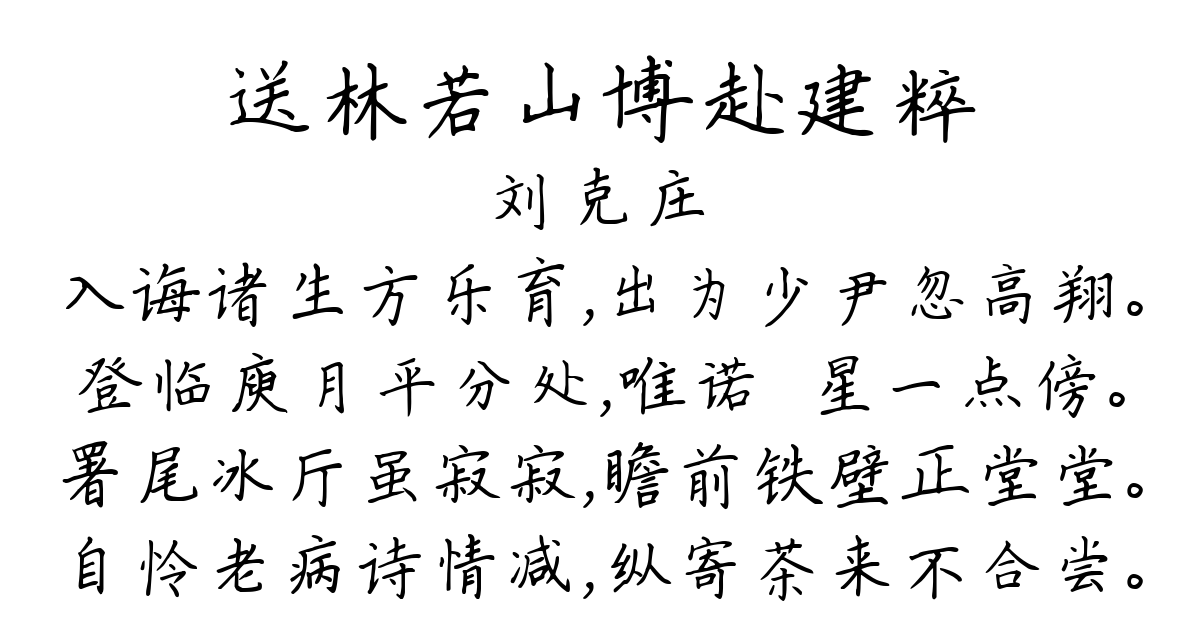 送林若山博赴建粹
刘克庄
入诲诸生方乐育,出为少尹忽高翔。
登临庾月平分处,唯诺 星一点傍。
署尾冰厅虽寂寂,瞻前铁壁正堂堂。
自怜老病诗情减,纵寄茶来不合尝。